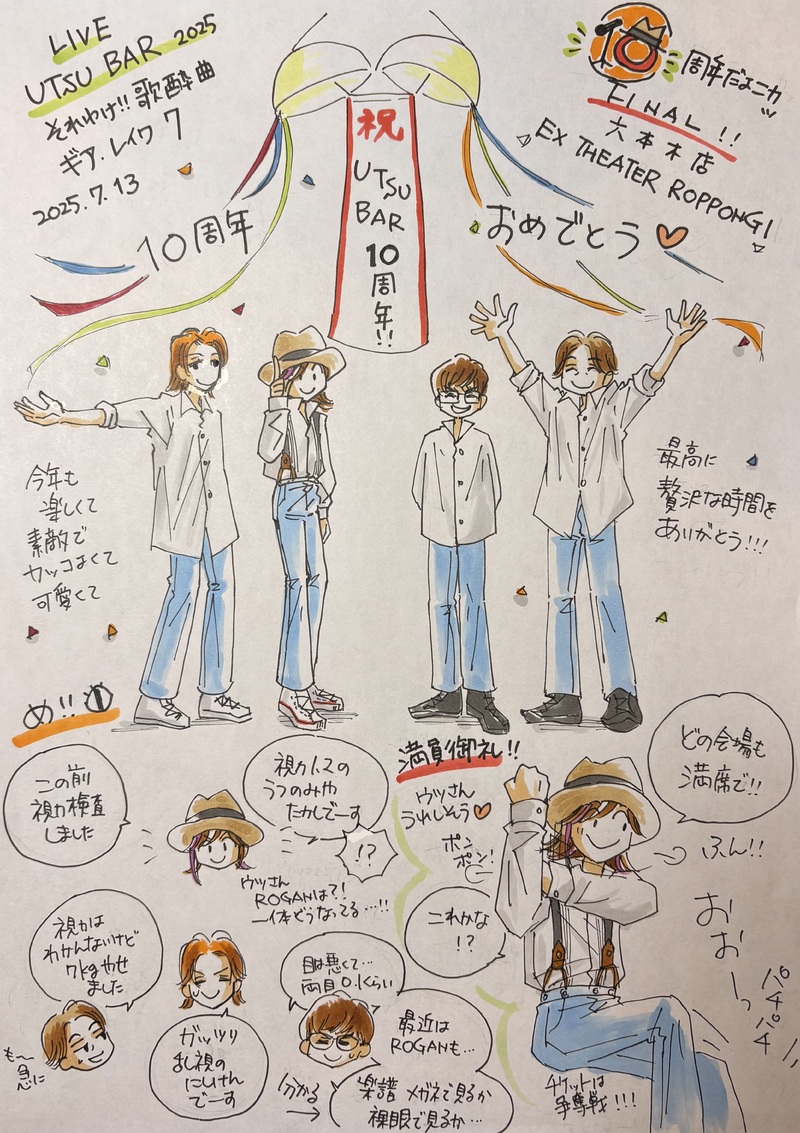 LIVE
UTSU BAR 2025
それゆけ!! 歌酔曲
ギア・レイワ 7
2025.7.13
10周年だよニカッ
FINAL!!
六本木店
EX THEATER ROPPONGI
祝
UTSU
BAR
10
周
年!!
10周年
おめでとう♡
今年も
楽しくて
素敵で
カッコよくて
可愛くて
最高に
贅沢な時間を
ありがとう!!!
め!!
この前
視力検査
しました
視力1.2の
うつのみや
たかしでーす
!?
ウツさん
ROGANは?!
一体どうなってる…!!
視力は
わかんないけど
7kgやせ
ました
も〜
急に
ガッツリ
乱視の
にしけん
でーす
目は悪くて…
両目0.1くらい
最近は
ROGANも…
分かる
→
楽譜 メガネで見るか
裸眼で見るか…
満員御礼!!
ウツさん
うれしそう♡
ポン
ポン!
これかな
!?
どの会場も
満席で!!
ふん!!
おおーっ
パチパチ
チケットは
争奪戦!!!